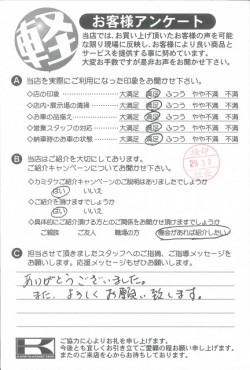 軽
お客様アンケート
当店では、お買い上げ頂いたお客様の声を可能
な限り現場に反映し、お客様により良い商品と
サービスを提供する事に努めています。
大変お手数ですが是非お声をお聞かせ下さい。
A 当店を実際にご利用になった印象をお聞かせ下さい。
◇店の印象 大満足 満足 ふつう やや不満 不満
◇店内・展示場の清掃 大満足 満足 ふつう やや不満 不満
◇お車の品揃え 大満足 満足 ふつう やや不満 不満
◇営業スタッフの対応 大満足 満足 ふつう やや不満 不満
◇納車時のお車の状態 大満足 満足 ふつう やや不満 不満
B 当店はご紹介を大切にしております。
ご紹介キャンペーンについてお聞かせ下さい。
◇カミタケご紹介キャンペーンのご説明はありましたでしょうか
はい いいえ
◇ご紹介を頂けますでしょうか
はい いいえ
◇具体的にご紹介頂ける方とのご関係をお聞かせ頂けますでしょうか
ご親族 ご友人 職場の方 機会があれば紹介したい
C 担当させて頂きましたスタッフへのご指摘、ご指導メッセージを
お願いします。応援メッセージもぜひお願いします。
ありがとうございました。
また、よろしくお願い致します。
K
ご協力に心よりお礼を申し上げます。
今後とも宜しくお引き立てご愛顧の程お願い申し上げます。
またのご来店を心からお待ちしております。